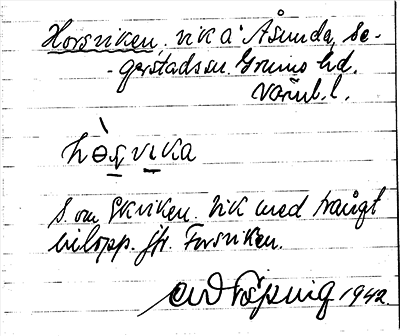 Horsviken, vik å Åsunda, Se-
-gerstadssn. Grums hd.
Värml. l.
hòrvika
S. om Ekviken. Vik med trångt
inlopp. Jfr. Forsviken.
1942